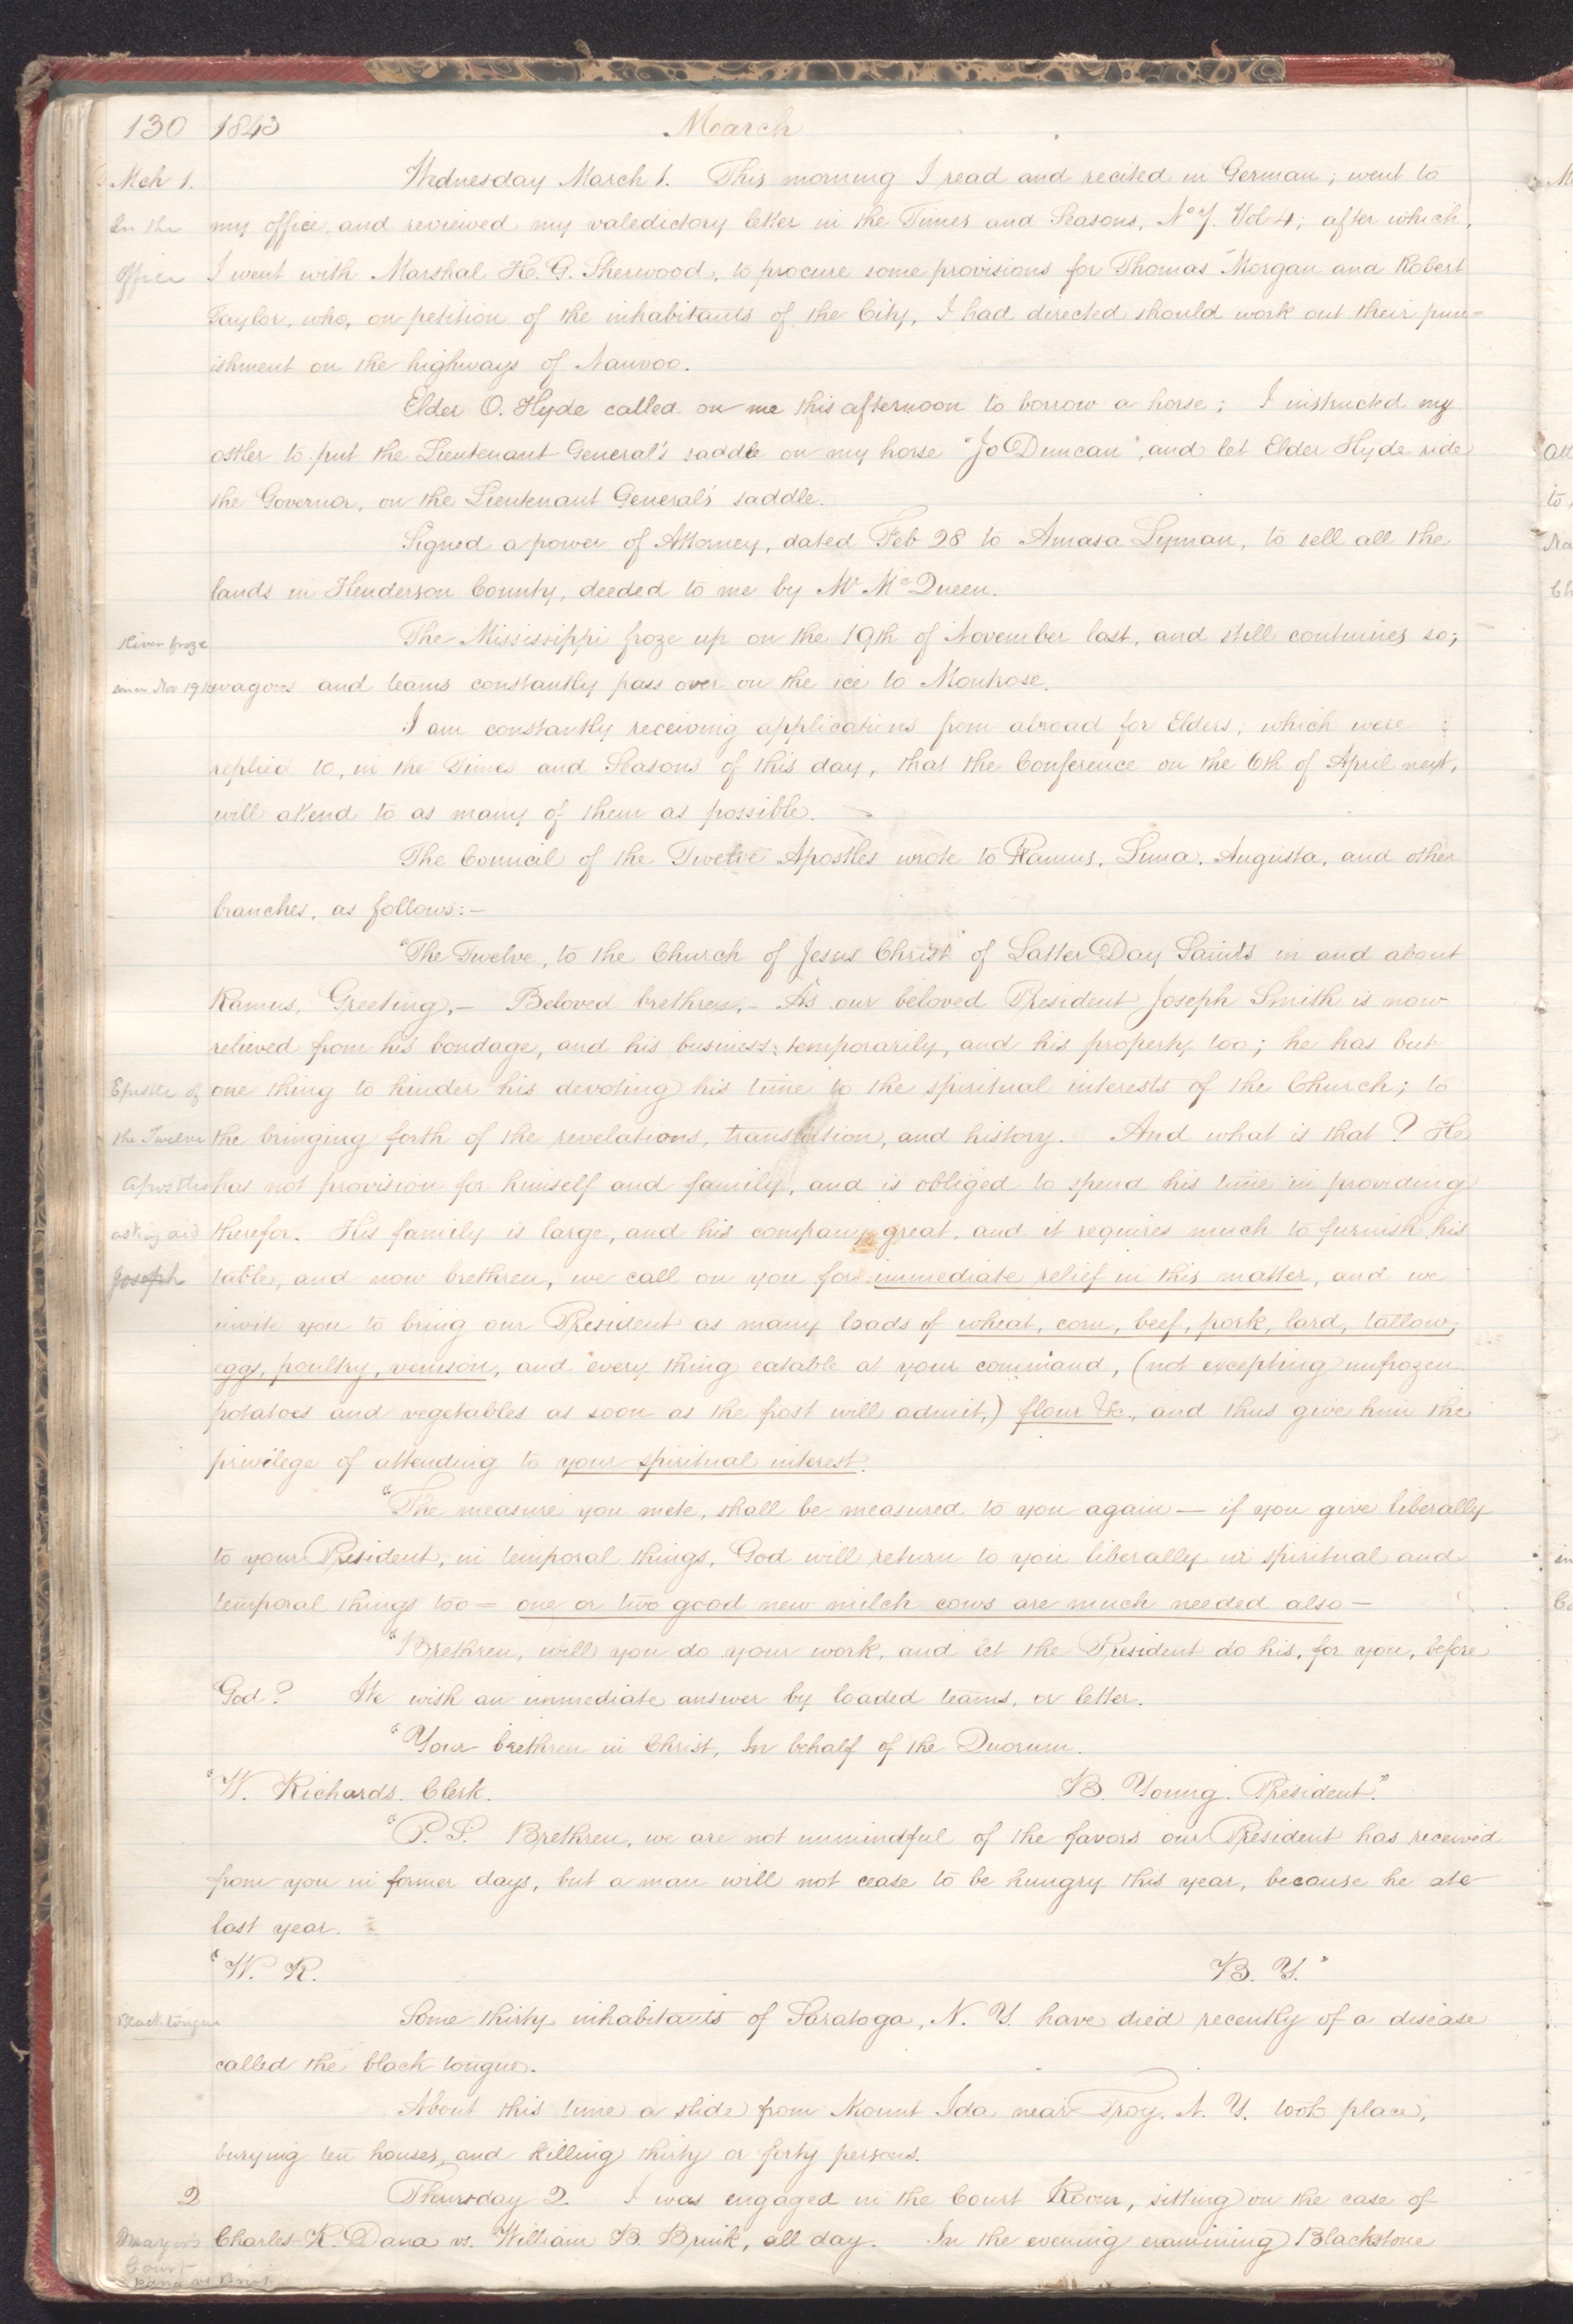 130 1843 March
Mch 1. Wednesday March 1. This morning I read and recited in German; went to
In the my office, and reviewed my valedictory letter in the Times and Seasons, No 7. Vol 4; after which,
Office I went with Marshal H. G. Sherwood, to procure some provisions for Thomas Morgan and Robert
Taylor, who, on petition of the inhabitants of the City, I had directed should work out their pun=
ishment on the highways of Nauvoo.
Elder O. Hyde called on me this afternoon to borrow a horse; I instructed my
ostler to put the Lieutenant General's saddle on my horse "Jo Duncan", and let Elder Hyde ride
the Governor, on the Lieutenant General's saddle.
Signed a power of Attorney, dated Feb 28 to Amasa Lyman, to sell all the
lands in Henderson County, deeded to me by Mr McQueen.
River froze The Mississippi froze up on the 19th of November last, and still continues so;
since Nov 19th wagons and teams constantly pass over on the ice to Montrose.
I am constantly receiving applications from abroad for Elders; which were
replied to, in the Times and Seasons of this day, that the Conference on the 6th of April next,
will attend to as many of them as possible.
The Council of the Twelve Apostles wrote to Ramus, Lima, Augusta, and other
branches, as follows:-
"The Twelve, to the Church of Jesus Christ of Latter Day Saints in and about
Ramus, Greeting,- Beloved brethren,- As our beloved President Joseph Smith is now
relieved from his bondage, and his business, temporarily, and his property too; he has but
Epistle of one thing to hinder his devoting his time to the spiritual interests of the Church; to
the Twelve the bringing forth of the revelations, translation, and history. And what is that? He
Apostles has not provision for himself and family, and is obliged to spend his time in providing
asking aid therefor. His family is large, and his company great, and it requires much to furnish his
Joseph table, and now brethren, we call on you for immediate relief in this matter, and we
invite you to bring our President as many loads of wheat, corn, beef, pork, lard, tallow,
eggs, poultry, venison, and every thing eatable at your command, (not excepting unfrozen
potatoes and vegetables as soon as the frost will admit,) flour &c., and thus give him the
privilege of attending to your spiritual interest.
"The measure you mete, shall be measured to you again — if you give liberally
to your President, in temporal things, God will return to you liberally in spiritual and
temporal things too = one or two good new milch cows are much needed also —
"Brethren, will you do your work, and let the President do his, for you, before
God? We wish an immediate answer by loaded teams, or letter.
"Your brethren in Christ, In behalf of the Quorum.
"W. Richards. Clerk. B. Young. President."
"P.S. Brethren, we are not unmindful of the favors our President has received
from you in former days, but a man will not cease to be hungry this year, because he ate
last year.
"W. R. B. Y."
Black tongue Some thirty inhabitants of Saratoga, N. Y. have died recently of a disease
called the black tongue.
About this time a slide from Mount Ida near Troy, N. Y. took place,
burying ten houses, and killing thirty or forty persons.
2 Thursday 2. I was engaged in the Court Room, sitting on the case of
Mayor's Charles R. Dana vs. William B. Brink, all day. In the evening examining Blackstone
Court
Dana vs Brink